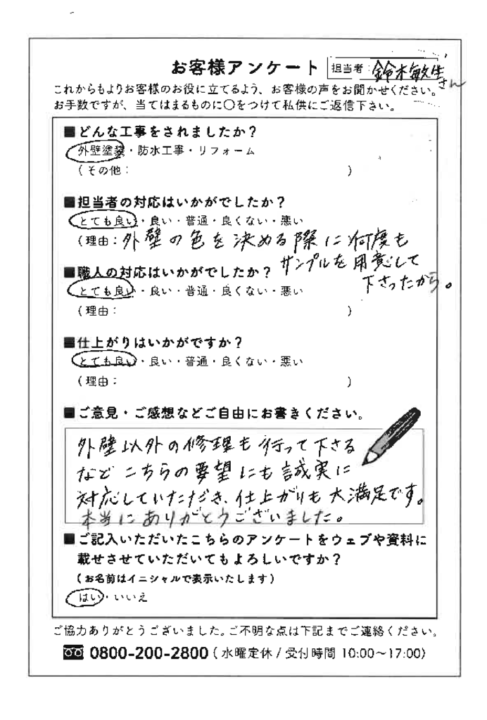 お客様アンケート 担当者: 鈴木敏生さん
これからもよりお客様のお役に立てるよう、お客様の声をお聞かせください。
お手数ですが、当てはまるものに〇をつけて私供にご返信下さい。
■どんな工事をされましたか?
外壁塗装・防水工事・リフォーム
(その他: )
■担当者の対応はいかがでしたか?
とても良い・良い・普通・良くない・悪い
(理由:外壁の色を決める際に何度も
サンプルを用意して
下さったから。
■職人の対応はいかがでしたか?
とても良い・良い・普通・良くない・悪い
(理由: )
■仕上がりはいかがですか?
とても良い・良い・普通・良くない・悪い
(理由: )
■ご意見・ご感想などご自由にお書きください。
外壁以外の修理も行って下さる
など こちらの要望にも誠実に
対応していただき、仕上がりも大満足です。
本当にありがとうございました。
■ご記入いただいたこちらのアンケートをウェブや資料に
載せさせていただいてもよろしいですか?
(お名前はイニシャルで表示いたします)
はい・いいえ
ご協力ありがとうございました。ご不明な点は下記までご連絡ください。
0800-200-2800(水曜定休/受付時間 10:00~17:00)